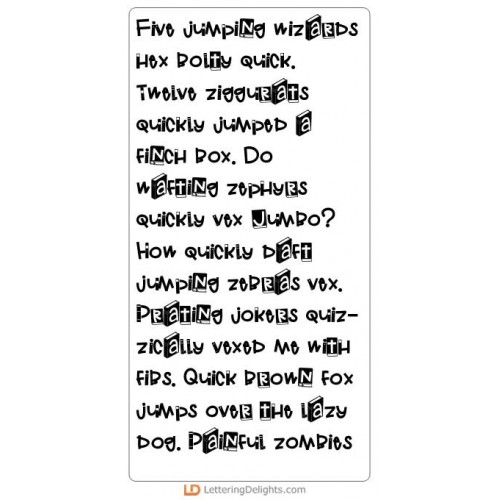 Five jumping wizards
hex bolty quick.
Twelve ziggurats
quickly jumped a
finch box. Do
wafting zephyrs
quickly vex Jumbo?
How quickly daft
jumping zebras vex.
Prating jokers quiz-
zically vexed me with
fibs. Quick brown fox
jumps over the lazy
dog. Painful zombies
LD LetteringDelights.com